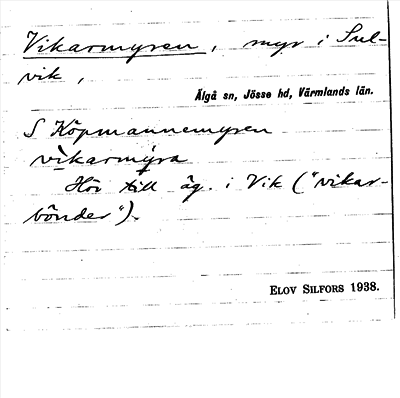 Vikarmyren, myr i Sul-
vik,
Älgå sn, Jösse hd, Värmlands län.
S Köpmannemyren
vìkarmýra
Hör till äg. i Vik ("vikar-
bönder").
ELOV SILFORS 1938.